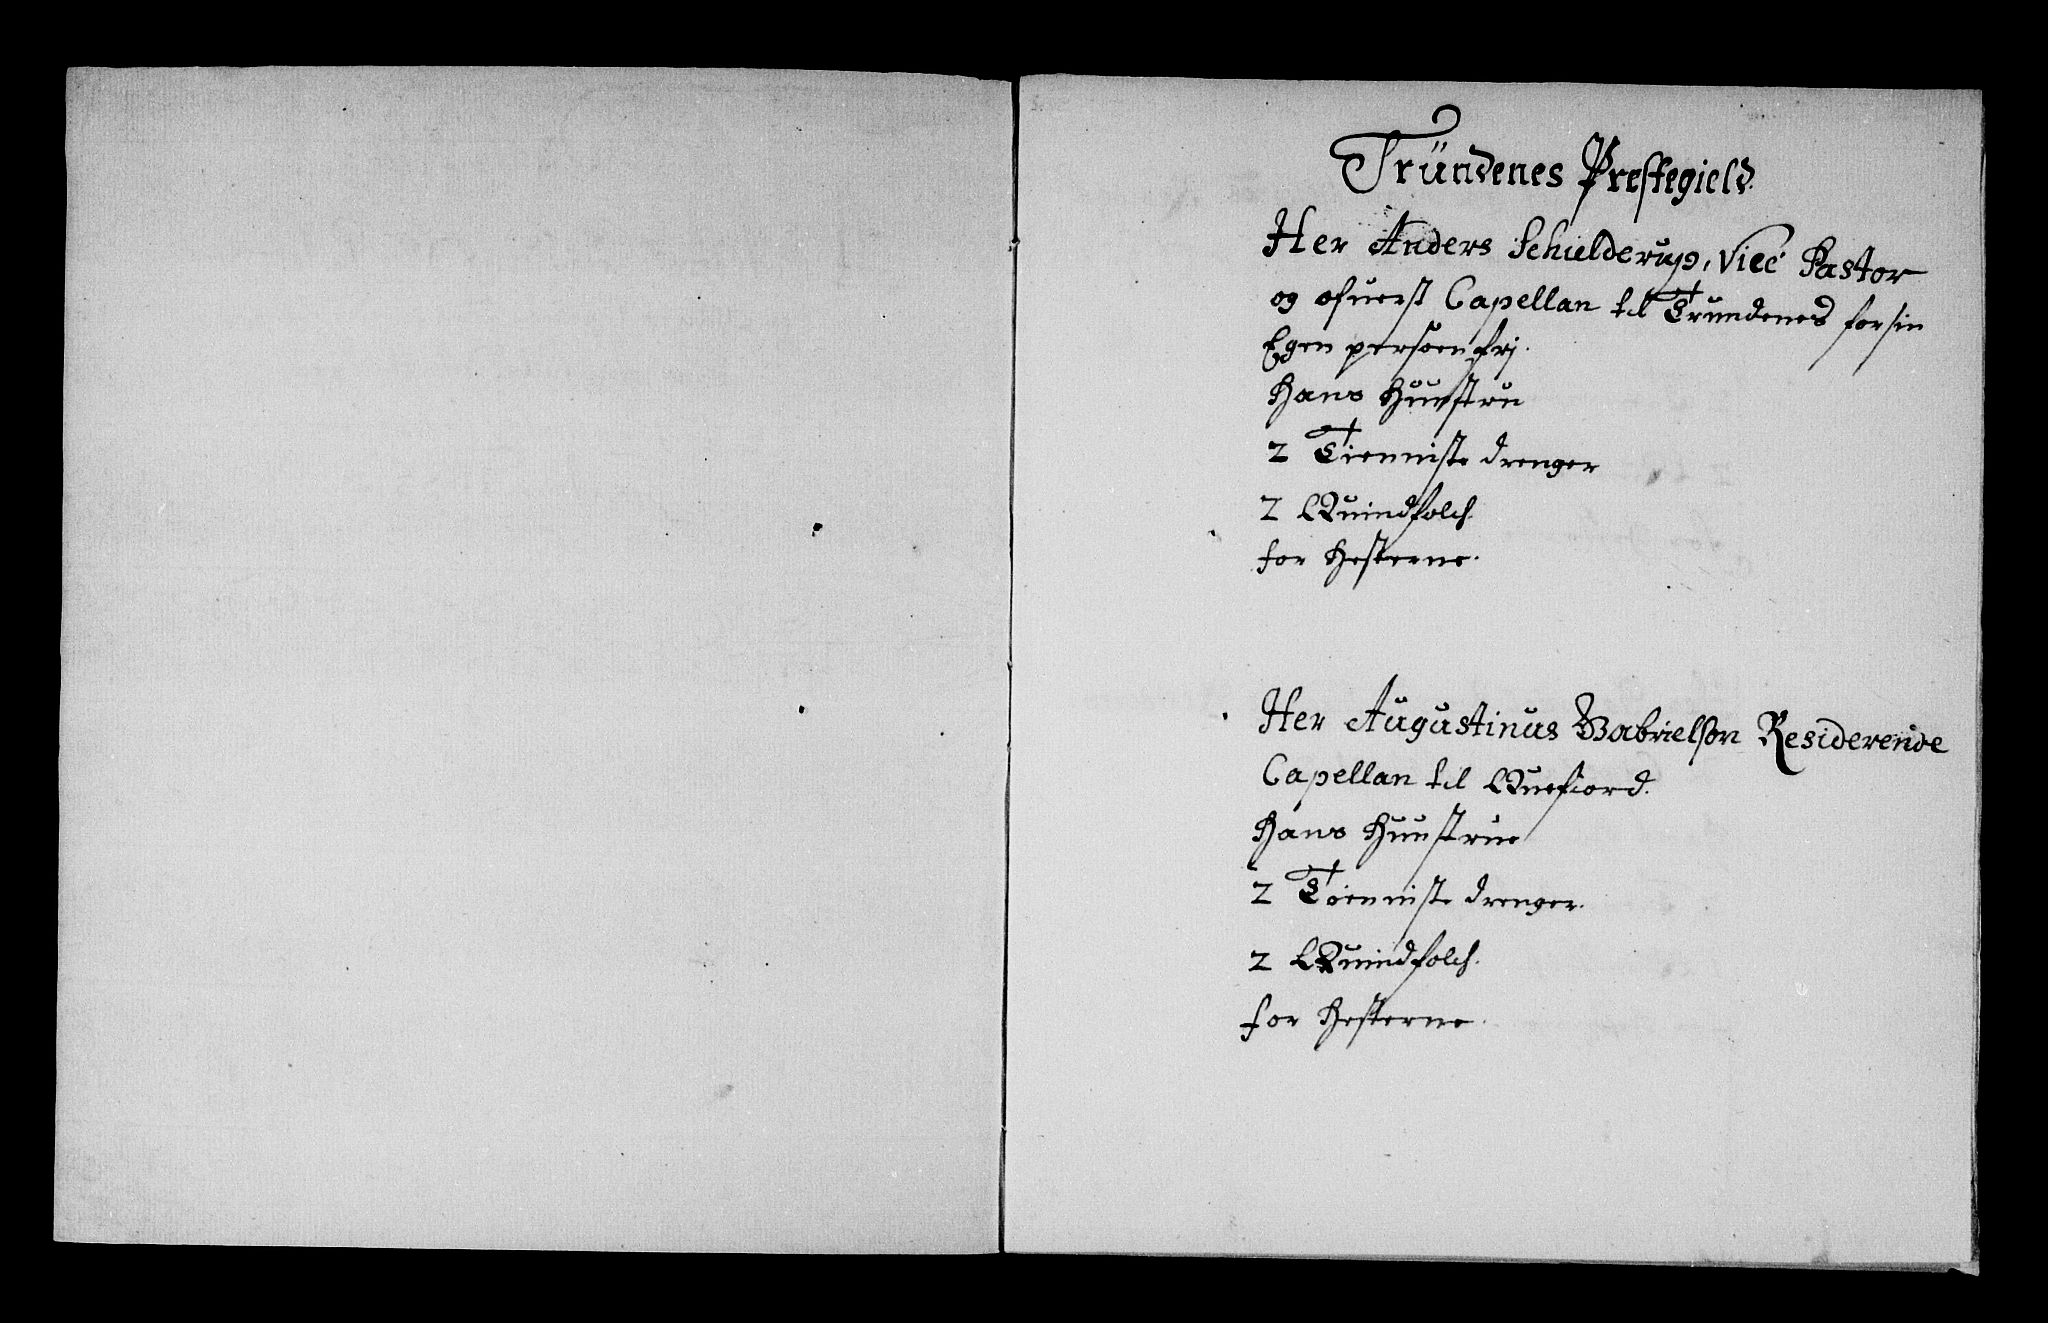 Tründenes Prestegield.
Her Anders Schielderup, Vice Pastor
og øfuerst Capellan til Trundenes for sin
Egen persoen frj.
Hans Huustru
2 Tienniste drenger
2 Quindfolch.
for Hesterne.
Her Augustinus Gabrielsøn Residerende
Capellan til Quefiord.
Hans Huustrue
2 Tienniste drenger.
2 Quindfolch.
for Hesterne.